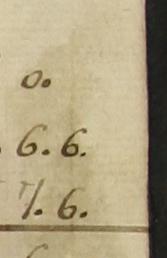 0.
. 6. 6.
7. 6.